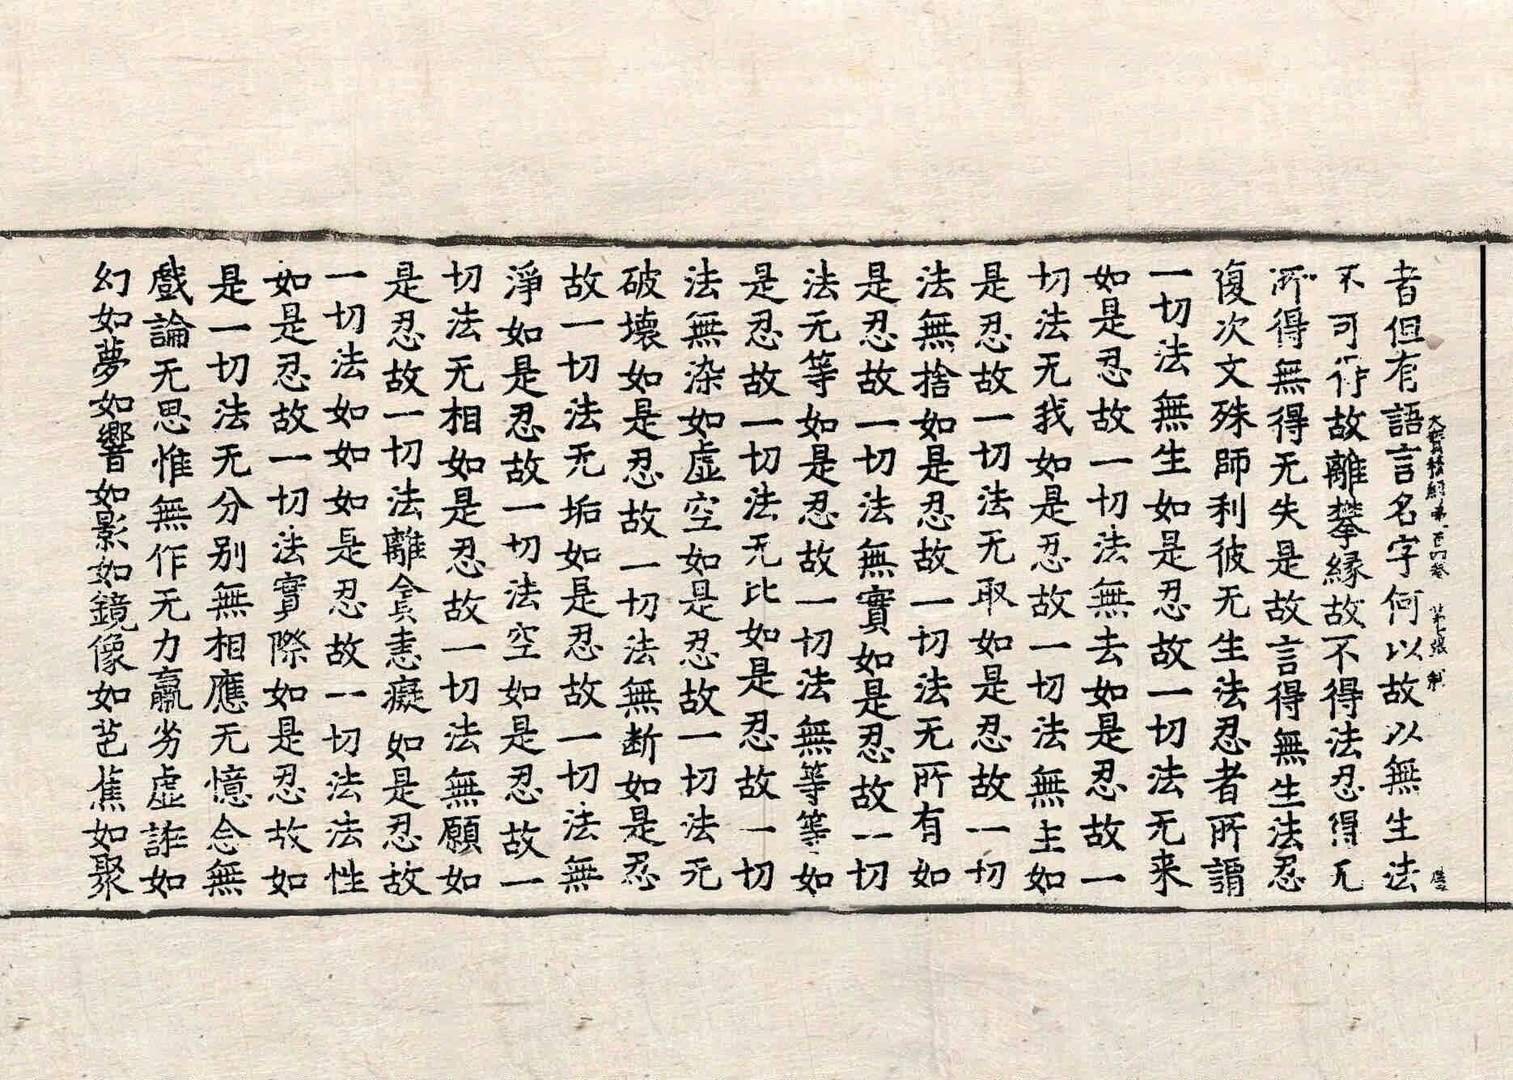 大寶積經第一百四卷 第七張
者但有語言名字何以故以無生法
不可得故離攀縁故不得法忍得无
所得無得无失是故言得無生法忍
復次文殊師利彼无生法忍者所謂
一切法無生如是忍故一切法无来
如是忍故一切法無去如是忍故一
切法无我如是忍故一切法無主如
是忍故一切法无取如是忍故一切
法無捨如是忍故一切法无所有如
是忍故一切法無實如是忍故一切
法无等如是忍故一切法無等等如
是忍故一切法无比如是忍故一切
法無染如虚空如是忍故一切法无
破壞如是忍故一切法無断如是忍
故一切法无垢如是忍故一切法無
淨如是忍故一切法空如是忍故一
切法无相如是忍故一切法無願如
是忍故一切法離貪恚癡如是忍故
一切法如如如是忍故一切法法性
如是忍故一切法實際如是忍故如
是一切法无分别無相應无憶念無
戲論无思惟無作无力羸劣虚誑如
幻如夢如響如影如鏡像如芭蕉如聚